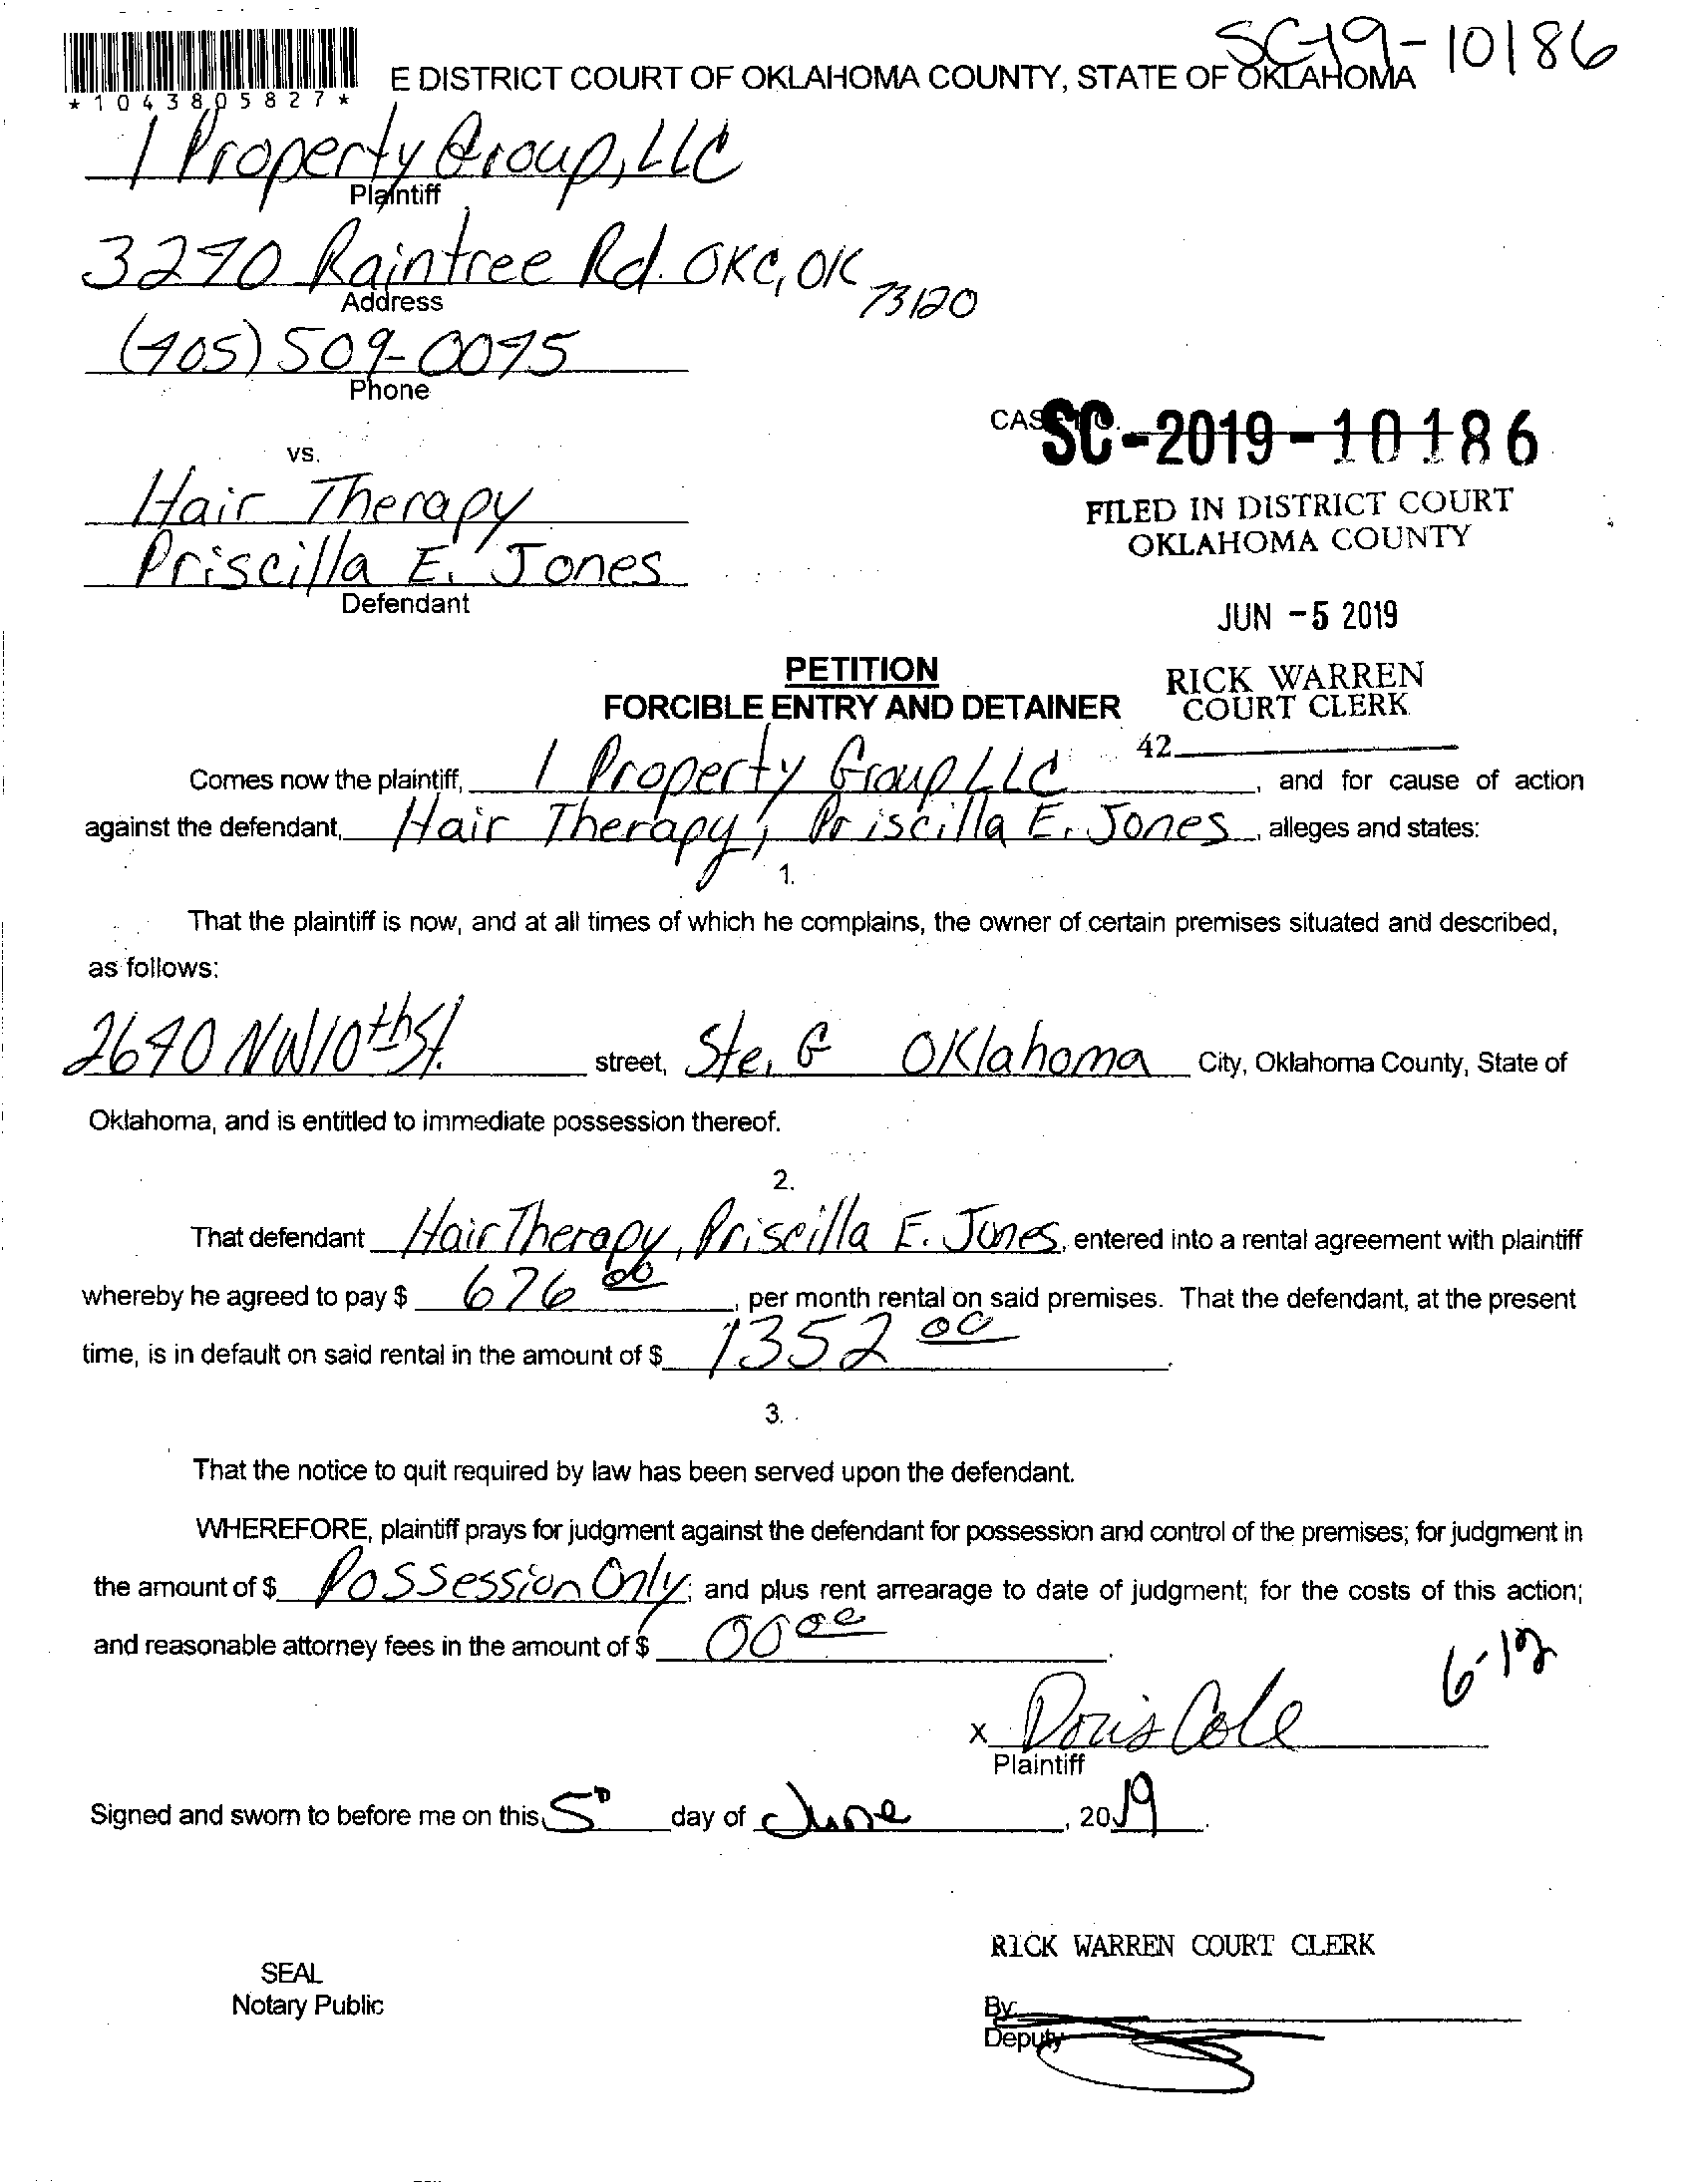 SC-19-10186
*1043805827*
E DISTRICT COURT OF OKLAHOMA COUNTY, STATE OF OKLAHOMA
1 Property Group, LLC
Plaintiff
3290 Raintree Rd. OKC, OK 73120
Address
(405) 509-0095
Phone
CASE NO. SC-2019-10186
vs.
Hair Therapy
Priscilla E. Jones
Defendant
FILED IN DISTRICT COURT
OKLAHOMA COUNTY
JUN -5 2019
RICK WARREN
COURT CLERK
42
PETITION
FORCIBLE ENTRY AND DETAINER
Comes now the plaintiff, 1 Property Group LLC, and for cause of action
against the defendant, Hair Therapy, Priscilla E. Jones, alleges and states:
1.
That the plaintiff is now, and at all times of which he complains, the owner of certain premises situated and described,
as follows:
2640 NW 10th St. street, Ste. G Oklahoma City, Oklahoma County, State of
Oklahoma, and is entitled to immediate possession thereof.
2.
That defendant Hair Therapy, Priscilla E. Jones, entered into a rental agreement with plaintiff
whereby he agreed to pay $ 676 00, per month rental on said premises. That the defendant, at the present
time, is in default on said rental in the amount of $ 1352 00.
3.
That the notice to quit required by law has been served upon the defendant.
WHEREFORE, plaintiff prays for judgment against the defendant for possession and control of the premises; for judgment in
the amount of $ Possession Only; and plus rent arrearage to date of judgment; for the costs of this action;
and reasonable attorney fees in the amount of $ 00 00.
6-12
x Doris Cole
Plaintiff
Signed and sworn to before me on this 5 day of June, 2019.
RICK WARREN COURT CLERK
SEAL
Notary Public
By
Deputy